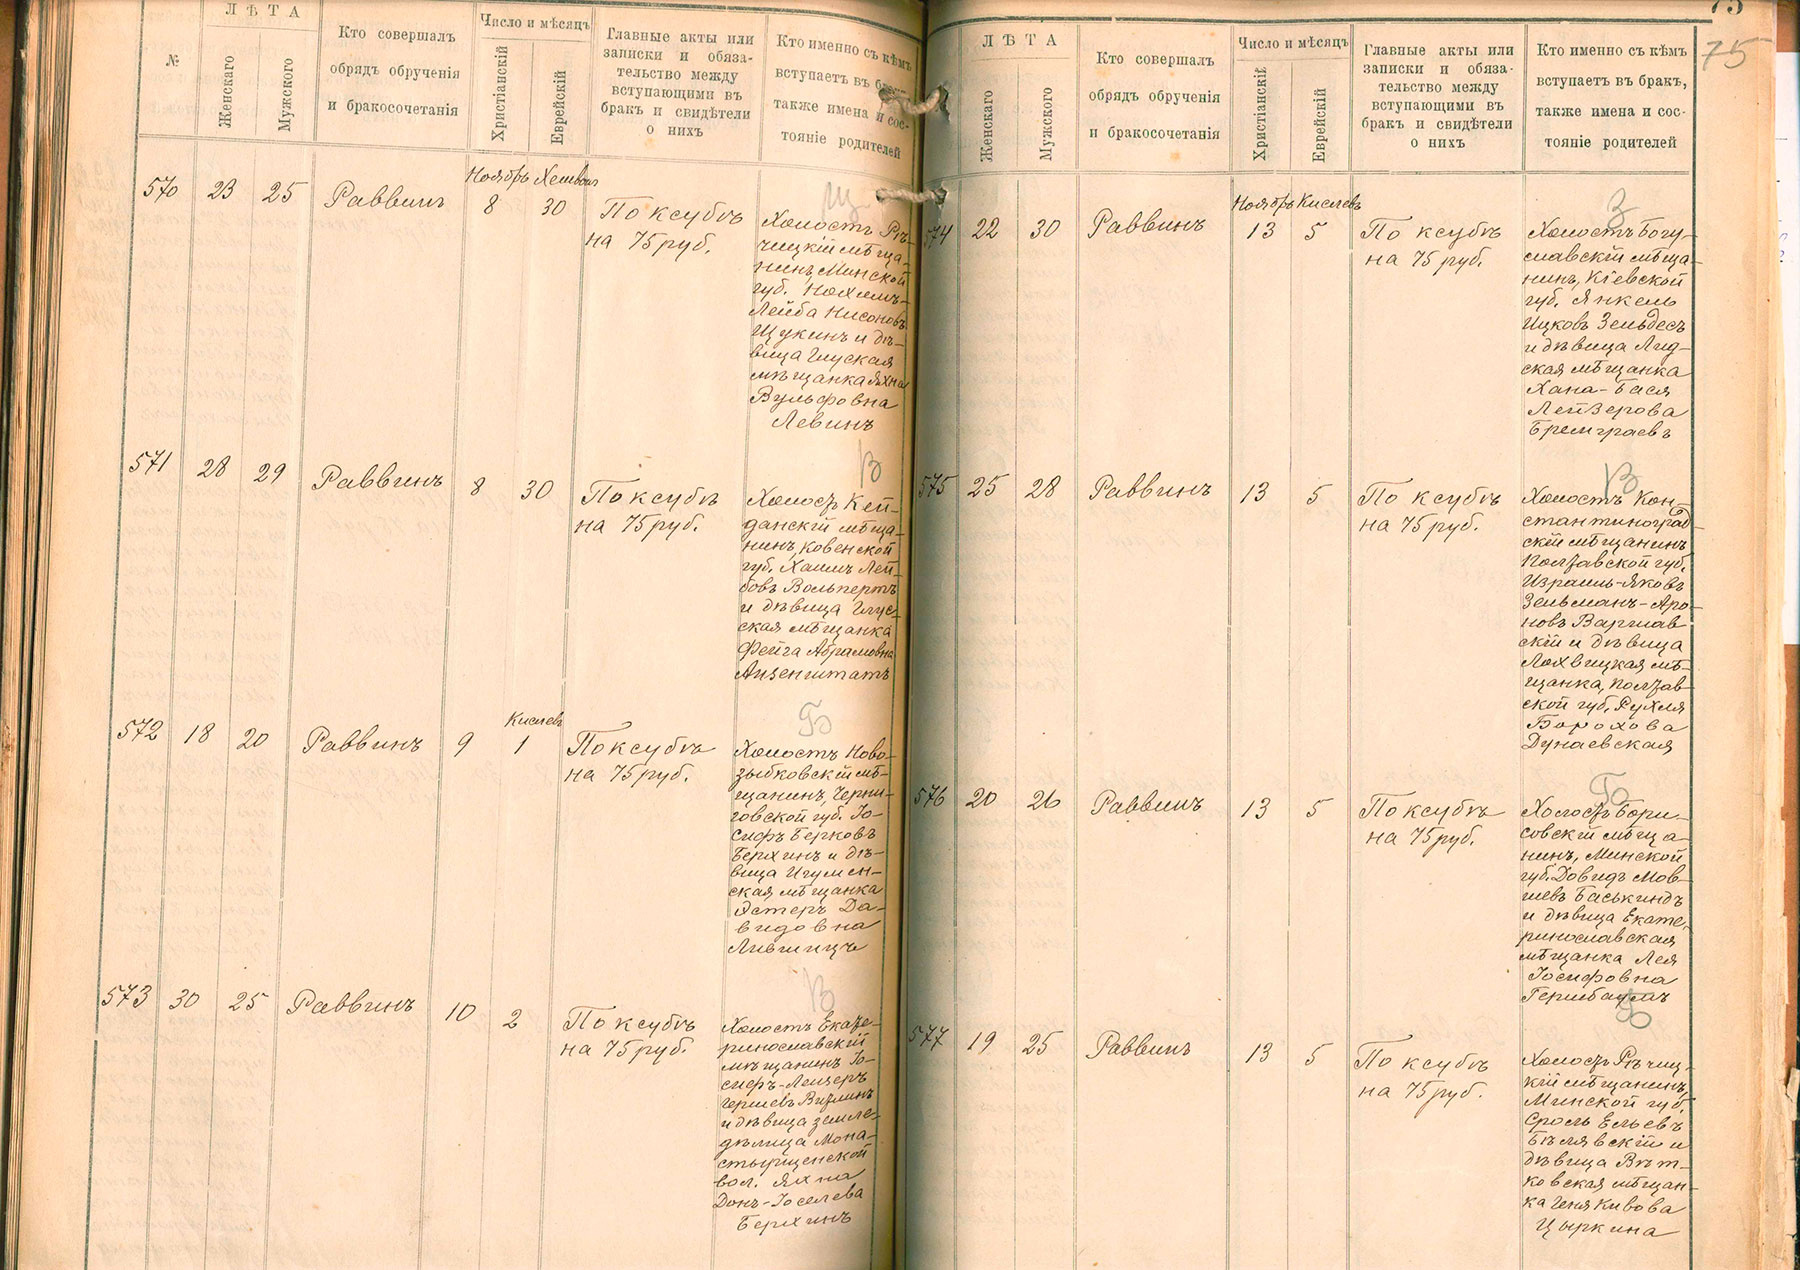 №
ЛѢТА
Женскаго
Мужского
Кто совершалъ
обрядъ обрученія
и бракосочетанія
Число и мѣсяцъ
Христіанскій
Еврейскій
Главные акты или
записки и обяза-
тельство между
вступающими въ
бракъ и свидѣтели
о нихъ
Кто именно съ кѣмъ
вступаетъ въ бракъ,
также имена и сос-
тояніе родителей
Ноябрь Хешвон
570 23 25 Раввинъ 8 30 По ксубѣ
на 75 руб.
Щ
Холостъ Рѣ-
чицкій мѣща-
нинъ, Минской
губ. Нохимъ-
Лейба Нисоновъ
Щукинъ и дѣ-
вица Глуская
мѣщанка Яхна
Вульфовна
Левинъ
571 28 29 Раввинъ 8 30 По ксубѣ
на 75 руб.
В
Холостъ Кей-
данскій мѣща-
нинъ, Ковенской
губ. Хаимъ Лей-
бовъ Вольпертъ
и дѣвица Глус-
ская мѣщанка
Фейга Абрамовна
Айзенштатъ
Кислевъ
572 18 20 Раввинъ 9 1 По ксубѣ
на 75 руб.
Б
Холостъ Ново-
зыбковскій мѣ-
щанинъ, Черни-
говской губ. Іо-
сифъ Берковъ
Берхинъ и дѣ-
вица Игумен-
ская мѣщанка
Эстеръ Да-
видовна
Лившицъ
573 30 25 Раввинъ 10 2 По ксубѣ
на 75 руб.
В
Холостъ Екате-
ринославскій
мѣщанинъ Іо-
сифъ-Лейзеръ
Гершевъ
и дѣвица земле-
дѣлица Мона-
стырщенской
вол. Яхна
Донъ-Іоселева
Берхинъ
75
ЛѢТА
Женскаго
Мужского
Кто совершалъ
обрядъ обрученія
и бракосочетанія
Число и мѣсяцъ
Христіанскій
Еврейскій
Главные акты или
записки и обяза-
тельство между
вступающими въ
бракъ и свидѣтели
о нихъ
Кто именно съ кѣмъ
вступаетъ въ бракъ,
также имена и сос-
тояніе родителей
Ноябрь Кислевъ
574 22 30 Раввинъ 13 5 По ксубѣ
на 75 руб.
З
Холостъ Богу-
славскій мѣща-
нинъ, Кіевской
губ. Янкель
Ицковъ Зельдесъ
и дѣвица Лид-
ская мѣщанка
Хана-Бася
Лейзерова
575 25 28 Раввинъ 13 5 По ксубѣ
на 75 руб.
В
Холостъ Кон-
стантиноград-
скій мѣщанинъ
Полтавской губ.
Израиль-Яковъ
Зельманъ-Аро-
новъ Варшав
скій и дѣвица
Лохвицкая мѣ-
щанка, Полтав-
ской губ. Рухля
Борохова
Дунаевская
576 20 26 Раввинъ 13 5 По ксубѣ
на 75 руб.
Б
Холостъ Бори-
совскій мѣща-
нинъ, Минской
губ. Довидъ Мов-
шевъ Баськиндъ
и дѣвица Екате-
ринославская
мѣщанка Лея
Іосифовна
Гершбаумъ
577 19 25 Раввинъ 13 5 По ксубѣ
на 75 руб.
Б
Холостъ Рѣчиц-
кій мѣщанинъ,
Минской губ.
Сроль Ельевъ
Бѣлявскій и
дѣвица Вѣт-
ковская мѣщан-
ка Геня Кивова
Цыркина